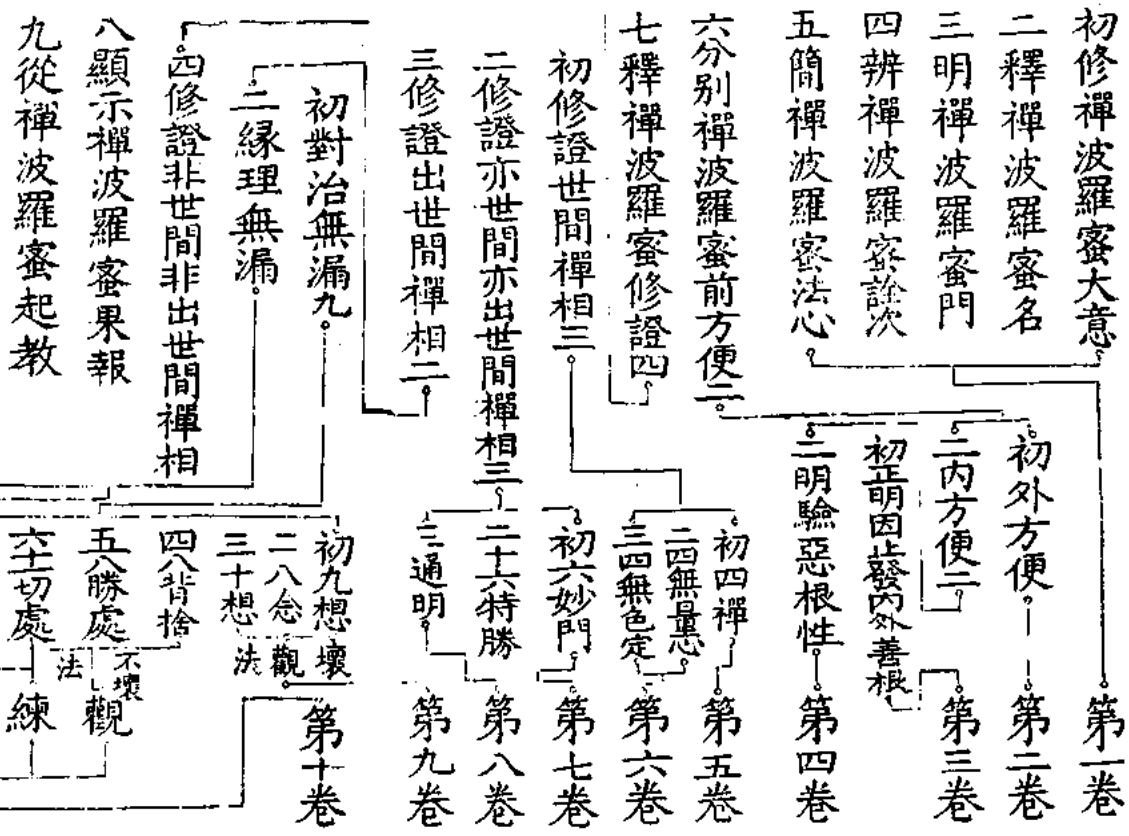 初修禪波羅蜜大意
二釋禪波羅蜜名
三明禪波羅蜜門
四辨禪波羅蜜詮次
五簡禪波羅蜜法心
六分别禪波羅蜜前方便二
七釋禪波羅蜜修證四
初修證世間禪相三
二修證亦世間亦出世間禪相三
三修證出世間禪相二
初對治無漏九
二緣理無漏
四修證非世間非出世間禪相
八顯示禪波羅蜜果報
九從禪波羅蜜起教
初外方便
二内方便二
初正明因止發内外善根
二明驗惡根性
初四禪
二四無量心
三四無色定
初六妙門
二十六特勝
三通明
初九想
二八念
三十想
壞法觀
四八背捨
五八勝處
六十一切處
不壞法觀
練
第一卷
第二卷
第三卷
第四卷
第五卷
第六卷
第七卷
第八卷
第九卷
第十卷